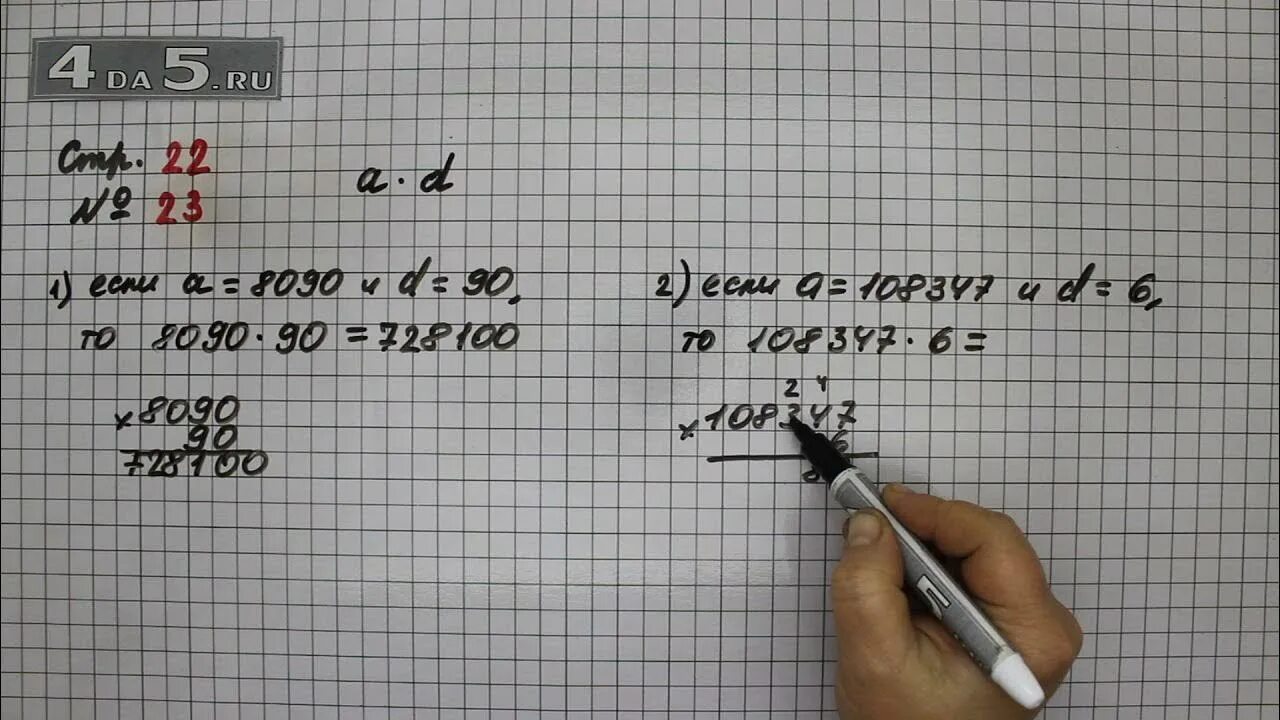 4DA5.RU
Стр. 22
№ 23
a · d
1) если a = 8090 и d = 90,
то 8090 · 90 = 728100
× 8090
90
728100
2) если a = 108347 и d = 6,
то 108347 · 6 =
2 4
× 108347
6